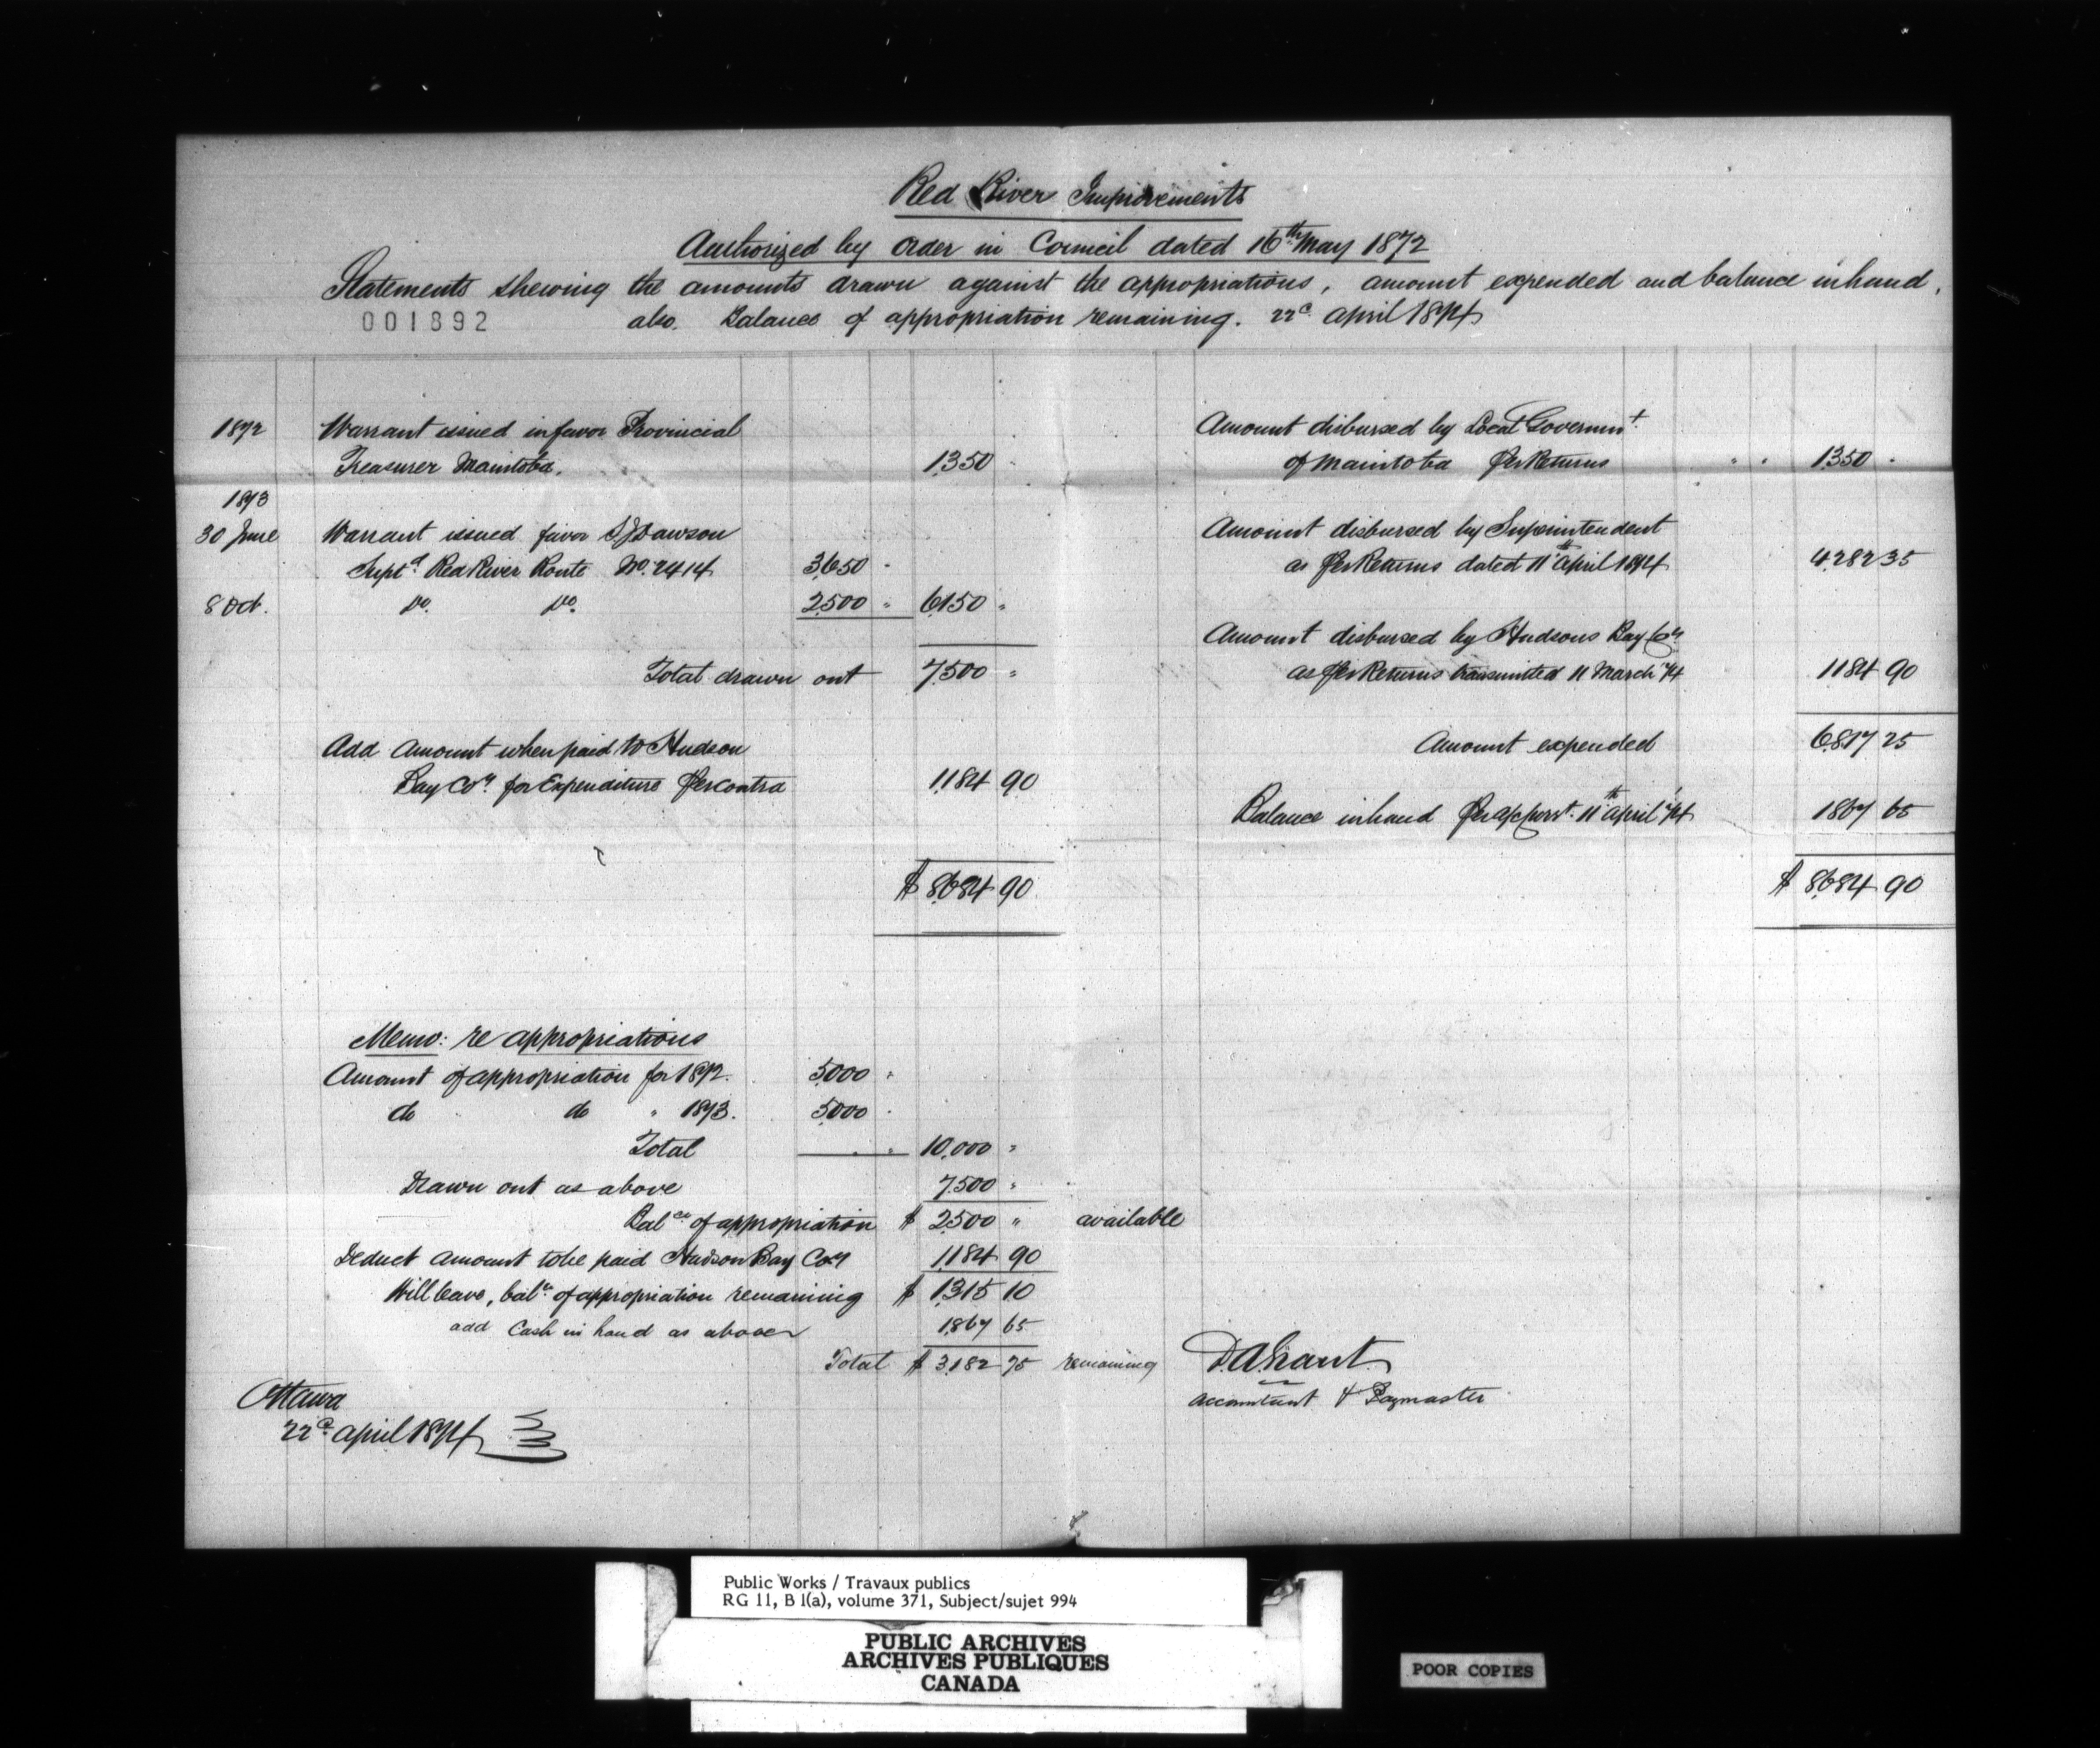 Red River Improvements
Authorized by Order in Council dated 16th May 1872
Statements shewing the amounts drawn against the appropriations, amount expended and balance in hand,
001892
also Balance of appropriation remaining. 22d April 1874
1872 Warrant issued in favor Provincial
Treasurer Manitoba. 1,350 "
1873
30 June Warrant issued favor S J Dawson
Supt. Red River Route No. 2414 3,650 "
8 Oct. Do. Do. 2,500 " 6,150 "
Total drawn out 7,500 "
Add amount when paid to Hudson
Bay Coy. for Expenditure per contra 1,184 90
$ 8,684 90
Amount disbursed by Local Governmt.
of Manitoba per Returns " " 1,350 "
Amount disbursed by Superintendent
as per Returns dated 11th April 1874 4,282 35
Amount disbursed by Hudsons Bay Coy.
as per Returns transmitted 11 March '74 1184 90
Amount expended 6,817 25
Balance in hand per 11th April '74 1867 65
$ 8,684 90
Memo: re appropriations
Amount of appropriation for 1872. 5,000 "
do do " 1873. 5,000 "
Total 10,000 "
Drawn out as above 7,500 "
Balce. of appropriation $ 2,500 " available
Deduct amount to be paid Hudson Bay Coy 1,184 90
Will leave, balce. of appropriation remaining $ 1,315 10
add Cash in hand as above 1,867 65
Total $ 3,182 75 remaining
D. A. Grant
Accountant & Paymaster
Ottawa
22d April 1874
Public Works / Travaux publics
RG 11, B 1(a), volume 371, Subject/sujet 994
PUBLIC ARCHIVES
ARCHIVES PUBLIQUES
CANADA
POOR COPIES